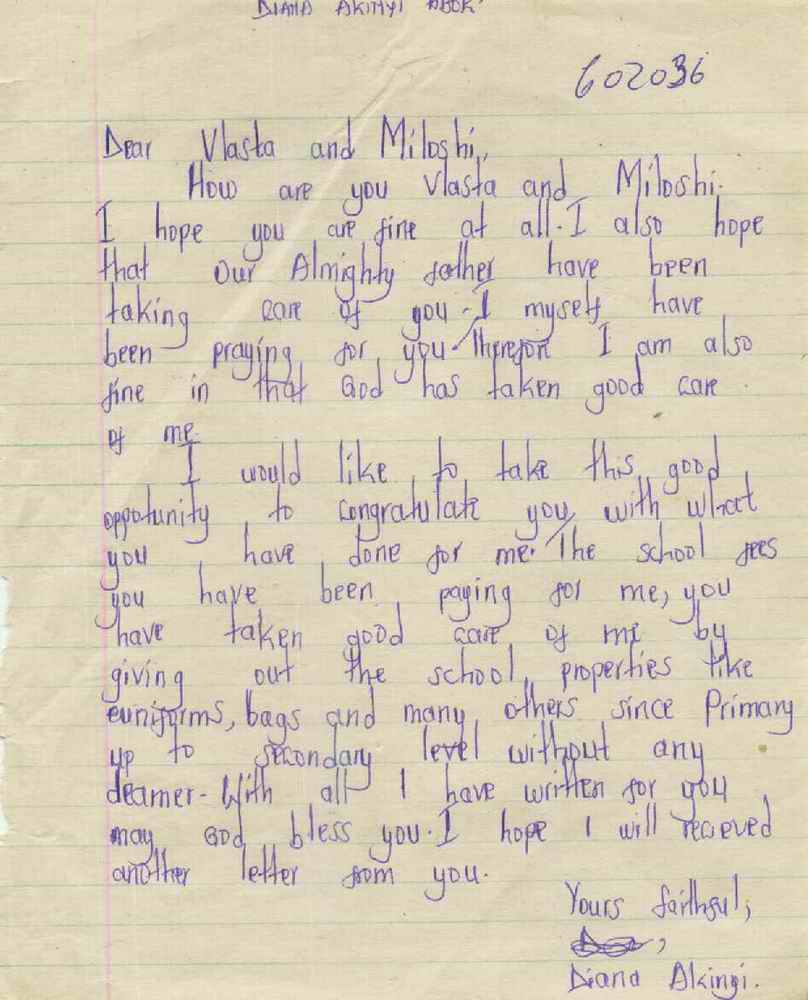 DIANA AKINYI
602036
Dear Vlasta and Miloshi,
How are you Vlasta and Miloshi.
I hope you are fine at all. I also hope
that Our Almighty father have been
taking care of you. I myself have
been praying for you. Therefore I am also
fine in that God has taken good care
of me.
I would like to take this good
oppotunity to congratulate you with what
you have done for me. The school fees
you have been paying for me, you
have taken good care of me by
giving out the school properties like
euniforms, bags and many others since Primary
up to secondary level without any
deamer. With all I have written for you
may God bless you. I hope I will recieved
another letter from you.
Yours faithful,
Diana Akinyi.